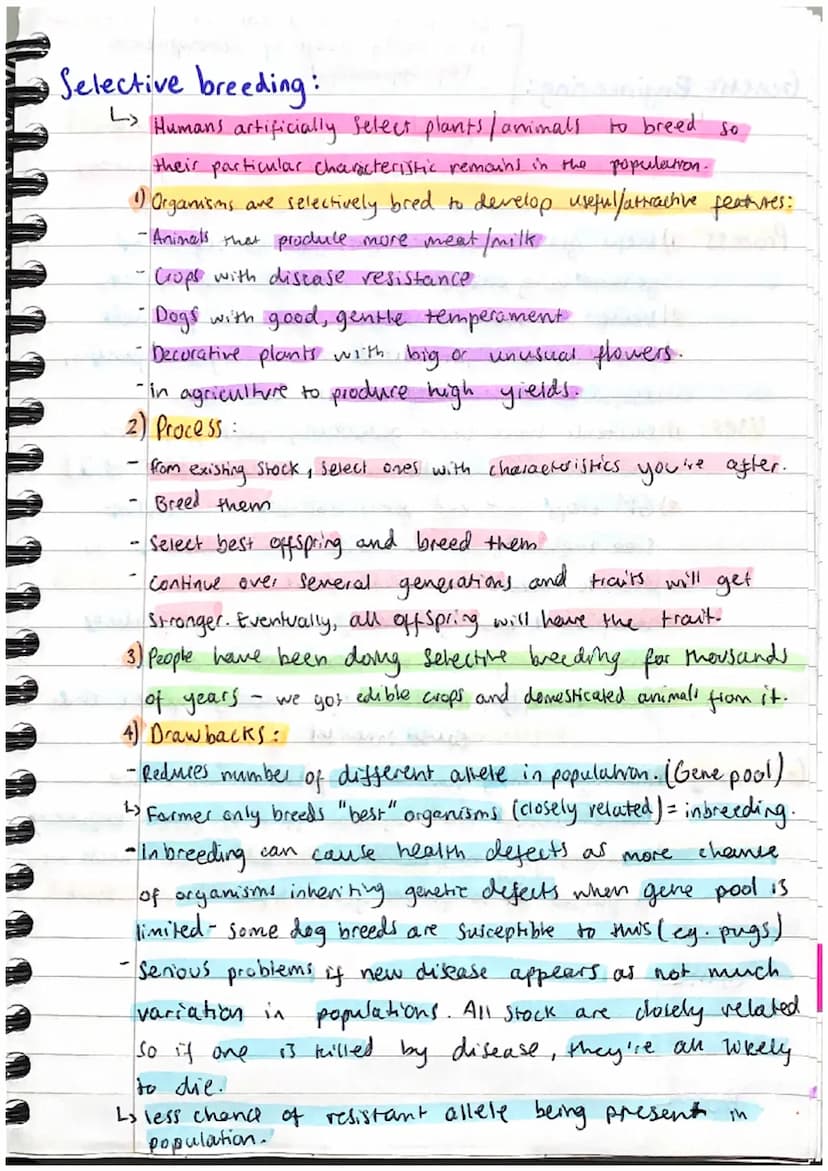 Selective breeding:
↳ Humans artificially select plants/animals to breed so
their particular characteristic remains in the population.
1) Organisms are selectively bred to develop useful/attractive features:
- Animals that produce more meat/milk
- Crops with disease resistance
- Dogs with good, gentle temperament
- Decorative plants with big or unusual flowers.
- in agriculture to produce high yields.
2) Process:
- from existing stock, select ones with characteristics you're after.
- Breed them
- Select best offspring and breed them
- Continue over several generations and traits will get
stronger. Eventually, all offspring will have the trait.
3) People have been doing selective breeding for thousands
of years - we got edible crops and domesticated animals from it.
4) Drawbacks:
- Reduces number of different allele in population. (Gene pool)
↳ Farmer only breeds "best" organisms (closely related) = inbreeding.
- Inbreeding can cause health defects as more chance
of organisms inheriting genetic defects when gene pool is
limited - some dog breeds are susceptible to this (eg. pugs)
- Serious problems if new disease appears as not much
variation in populations. All stock are closely related
so if one is killed by disease, they're all likely
to die.
↳ less chance of resistant allele being present in
population.